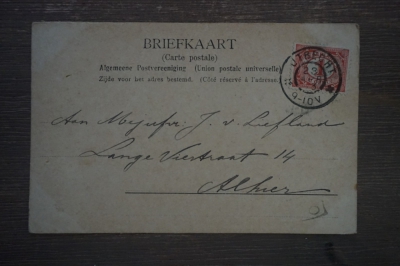 BRIEFKAART
(Carte postale)
Algemeene Postvereeniging (Union postale universelle)
Zijde voor het adres bestemd. (Côté réservé à l'adresse.)
UTRECHT
9-10V
Aan Mejufvr. J. v. Liefland
Lange Viestraat 14
Alhier